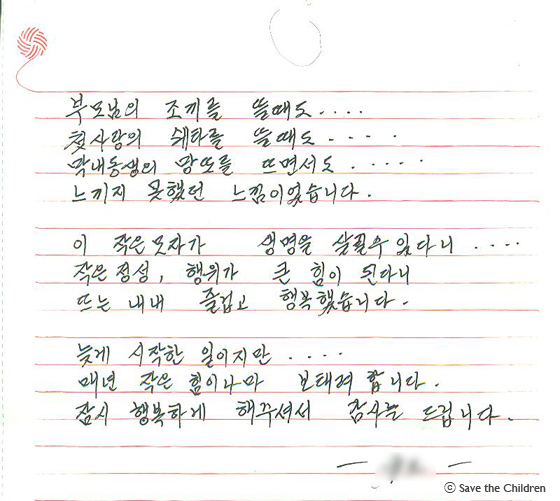 부모님의 조끼를 뜰때도....
첫사랑의 쉐타를 뜰때도....
막내동생의 망또를 뜨면서도.....
느끼지 못했던 느낌이었습니다.
이 작은모자가 생명을 살릴수 있다니....
작은 정성, 행위가 큰 힘이 된다니
뜨는 내내 즐겁고 행복했습니다.
늦게 시작한 일이지만....
매년 작은 힘이나마 보태려 합니다.
잠시 행복하게 해주셔서 감사를 드립니다.
ⓒ Save the Children